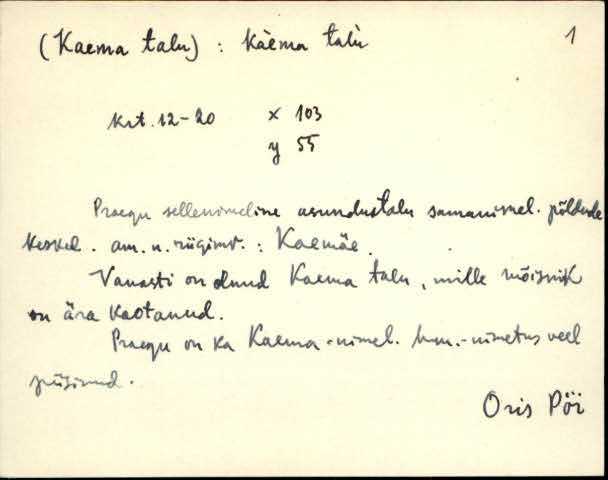 (Kaema talu) : kàema talù 1
krt. 12-20 x 103
y 55
Praegu sellenimeline asundustalu samanimel. põldude
keskel. am. n. riigimõ. : Kaemäe.
Vanasti on olnud Kaema talu, mille mõisnik
on ära kaotanud.
Praegu on ka Kaema-nimel. hm.-nimetus veel
püsinud.